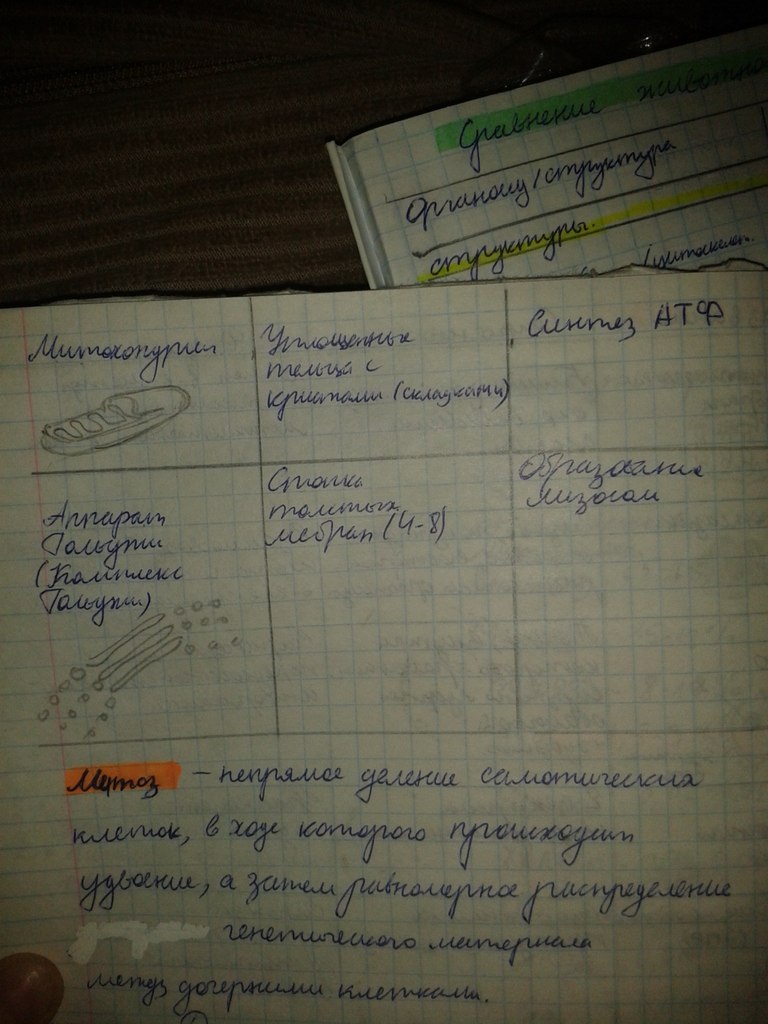 Сравнение животно
Органоид/структура
структуры.
/цитоскелет.
Митохондрии
Уплощенные
тельца с
кристами (складками)
Синтез АТФ
Аппарат
Гольджи
(Комплекс
Гольджи)
Стопка
мебран (4-8)
Образование
лизосом
Митоз - непрямое деление соматических
клеток, в ходе которого происходит
удвоение, а затем равномерное распределение
генетического материала
между дочерними клетками.